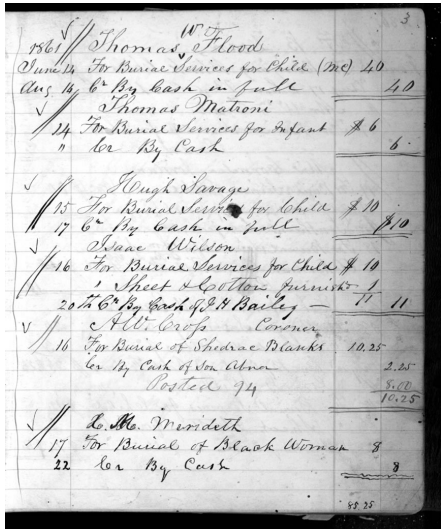 3
1861 Thomas W Flood
June 24 For Burial Services for Child (Mc) 40
Aug 14 Cr By Cash in full 40
Thomas Matroni
24 For Burial Services for Infant $ 6
" Cr By Cash 6
Hugh Savage
15 For Burial Services for Child $ 10
17 Cr By Cash in full $10
Isaac Wilson
16 For Burial Services for Child $ 10
1 Sheet & Cotton furnish 1
20th Cr By Cash of J H Bailey — 11 11
A. W. Cross Coroner
16 For Burial of Shedrac Blanks 10.25
Cr By Cash of Son Abner 2.25
Posted 94 8.00
10.25
Merideth
17 For Burial of Black Woman 8
22 Cr By Cash 8
85.25